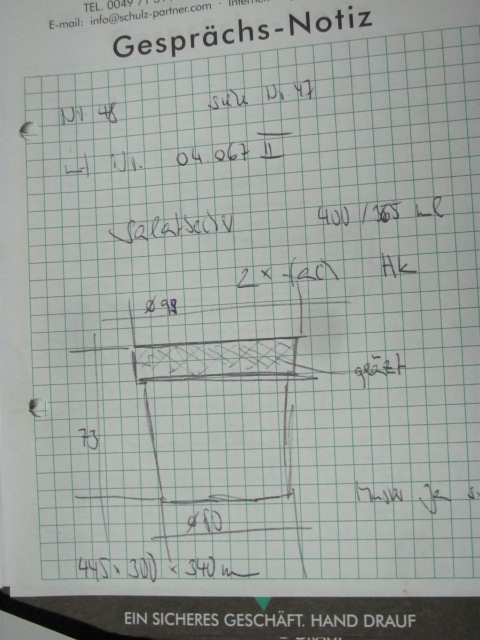 TEL. 0049 / 5
E-mail: info@schulz-partner.com · Internet
Gesprächs-Notiz
Nr 48 Nr 47
Nr. 04.067 II
400 / 365 ml
2 x fach HK
ø 98
geätzt
73
Muster je
ø 60
445 x 300 x 340 m
EIN SICHERES GESCHÄFT. HAND DRAUF